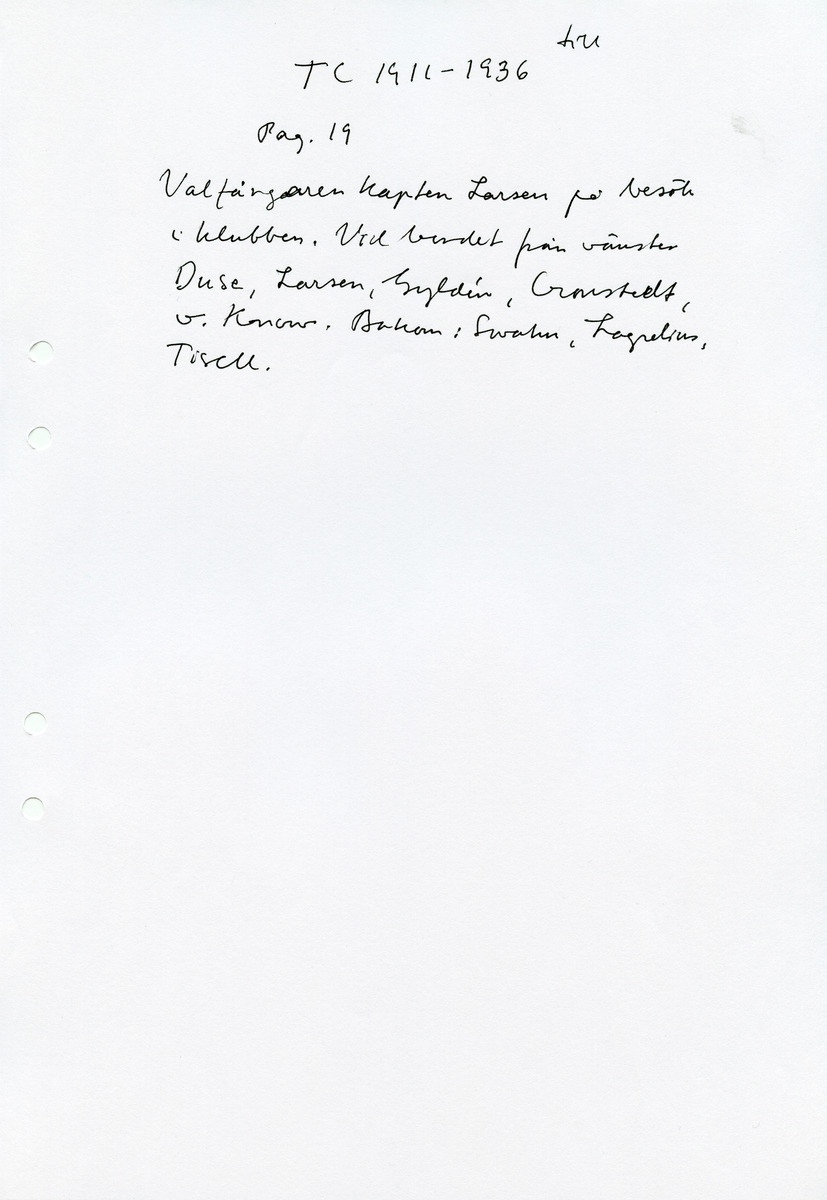 TC 1911-1936
Pag. 19
Valfångaren kapten Larsen på besök
i klubben. Vid bordet från vänster
Duse, Larsen, Gyldén, Cronstedt,
v. Konow. Bakom: Swahn, Lagrelius,
Tisell.